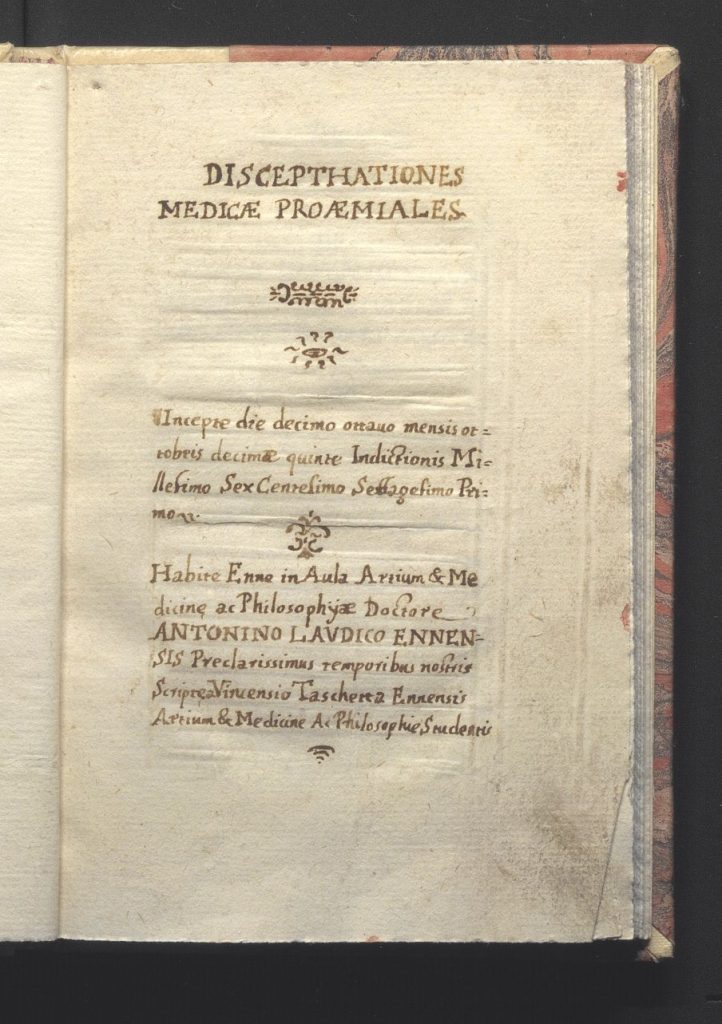 DISCEPTHATIONES
MEDICÆ PROÆMIALES
Incepte die decimo ottauo mensis ot=
tobris decimæ quinte Indictionis Mi=
llesimo Sex Centesimo Settagesimo Pri=
mo
Habite Enne in Aula Artium & Me
dicinę ac Philosophyæ Doctore
ANTONINO LAVDICO ENNEN=
SIS Preclarissimus temporibus nostris
Scriptę a Vincensio Taschetta Ennensis
Artium & Medicine Ac Philosophie Studentis